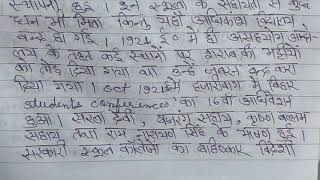 स्थापना हुई । इन स्कूलों के सहायता से कुछ
धन भी मिला किन्तु यही अधिकांश विद्यालय
बन्द हो गई । 1921 ई० में ही असहयोग आन्दो-
लन के तहत कई स्थानों पर शराब की भट्ठीयां
को तोड़ दिया गया या उन्हें जबरन बन्द करा
दिया गया । oct 1921 में हजारीबाग में बिहार
students conferences का 16वां अधिवेशन
हुआ । सरला देवी, बजरंग सहाय, कृष्ण वल्लभ
सहाय तथा राम नारायण सिंह के भाषण हुई ।
सरकारी स्कूल कॉलेजों का बहिष्कार विदेशी